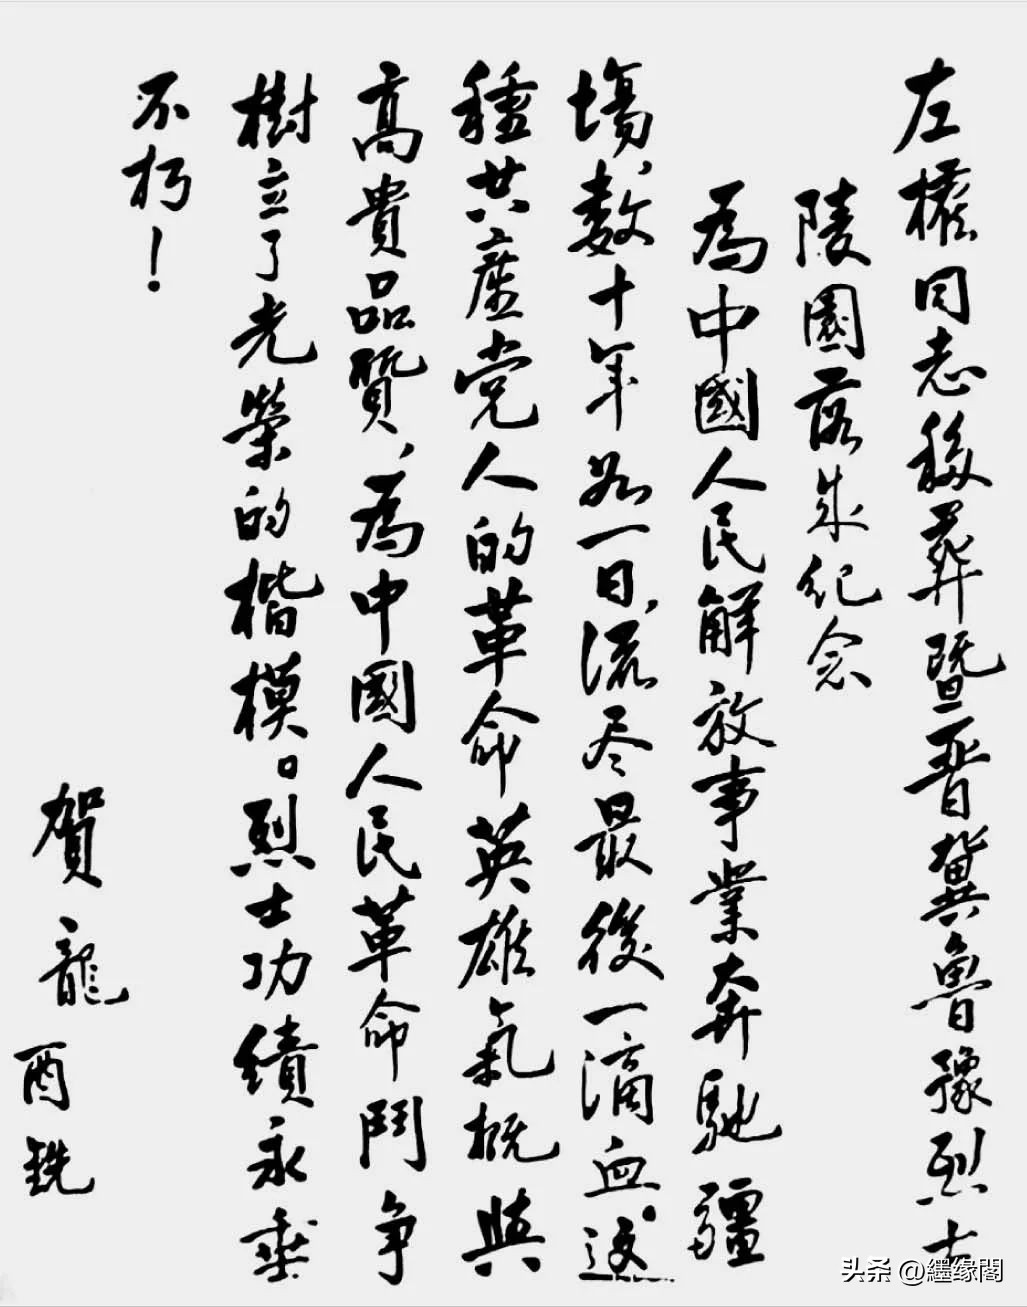 左權同志移葬暨晉冀魯豫烈士
陵園落成纪念
為中國人民解放事業奔馳疆
場，数十年如一日，流尽最後一滴血。这
種共產党人的革命英雄氣概與
高貴品質，為中國人民革命鬥争
樹立了光榮的楷模。烈士功績永垂
不朽！
賀龍 酉铣
头条